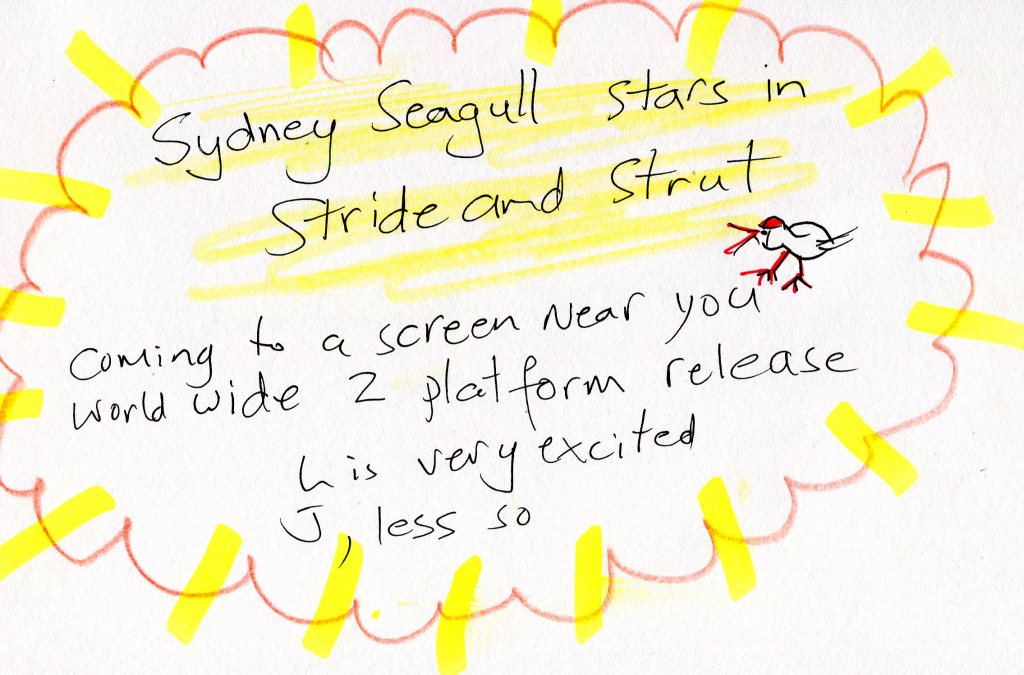 Sydney Seagull stars in
Stride and Strut
coming to a screen near you
world wide 2 platform release
L is very excited
J, less so